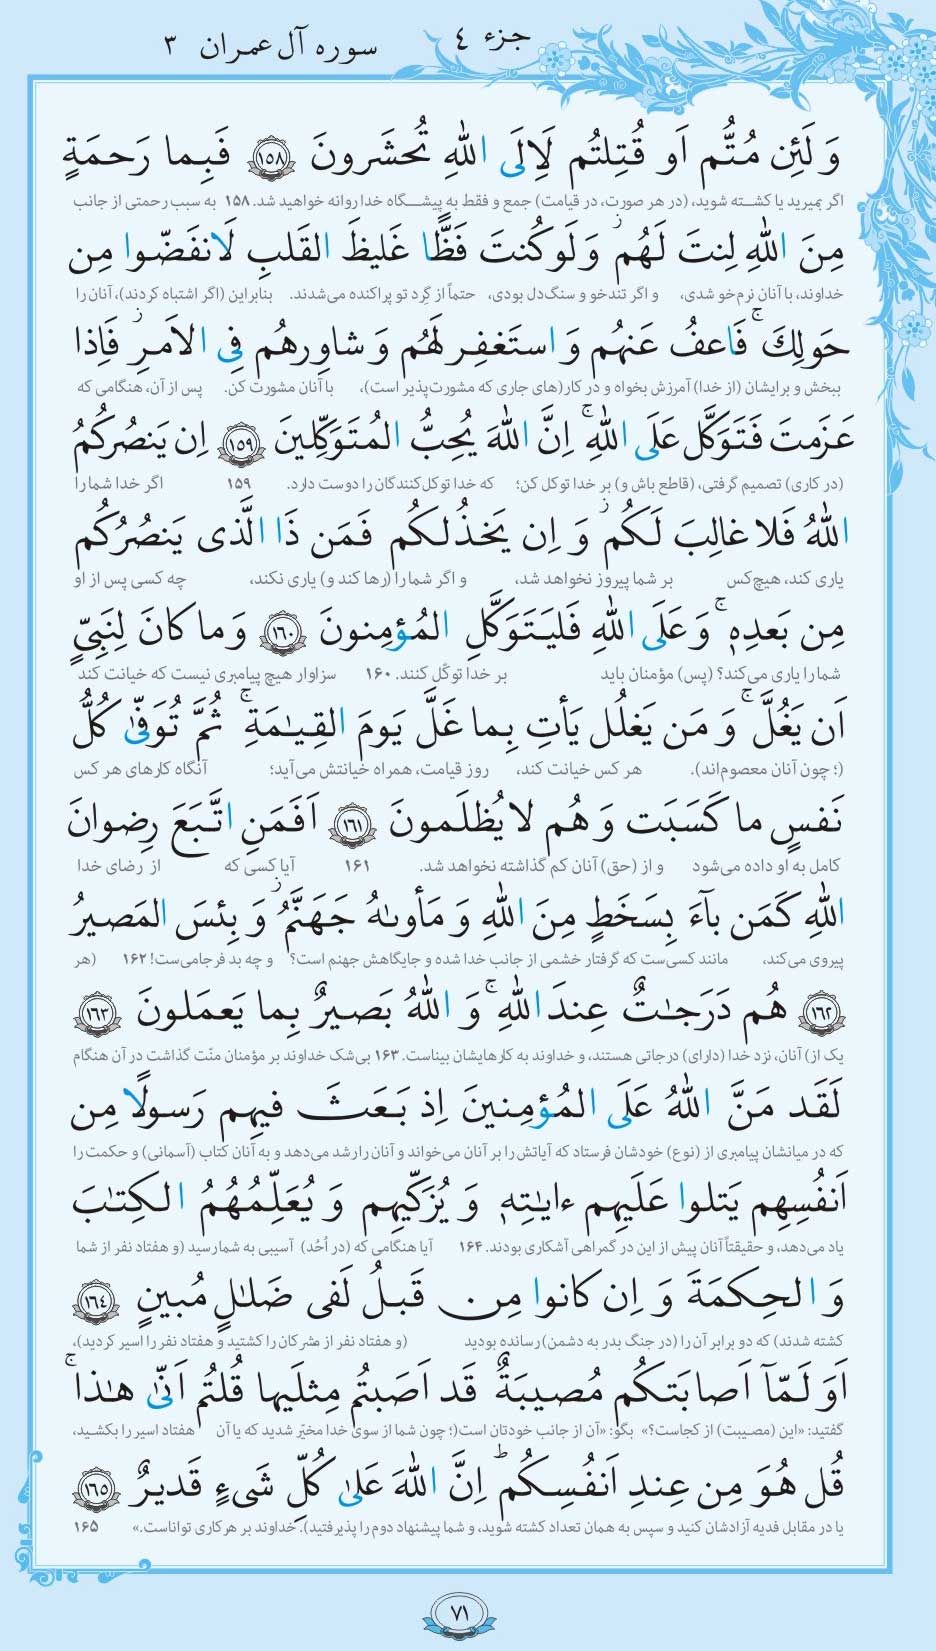 جزء ٤ سوره آل عمران ۳
وَ لَئِن مُتُّم اَو قُتِلتُم لَاِلَى اللهِ تُحشَرونَ ﴿١٥٨﴾ فَبِما رَحمَةٍ
اگر بمیرید یا کشته شوید، (در هر صورت، در قیامت) جمع و فقط به پیشگاه خدا روانه خواهید شد. ۱۵۸ به سبب رحمتی از جانب
مِنَ اللهِ لِنتَ لَهُم ۖ وَ لَو كُنتَ فَظًّا غَليظَ القَلبِ لَانفَضّوا مِن
خداوند، با آنان نرم‌خو شدی، و اگر تندخو و سنگ‌دل بودی، حتماً از گِرد تو پراکنده می‌شدند. بنابراین (اگر اشتباه کردند)، آنان را
حَولِكَ ۚ فَاعفُ عَنهُم وَ استَغفِر لَهُم وَ شاوِرهُم فِى الاَمرِ ۖ فَاِذا
ببخش و برایشان (از خدا) آمرزش بخواه و در کار(های جاری که مشورت‌پذیر است)، با آنان مشورت کن. پس از آن، هنگامی که
عَزَمتَ فَتَوَكَّل عَلَى اللهِ ۚ اِنَّ اللهَ يُحِبُّ المُتَوَكِّلينَ ﴿١٥٩﴾ اِن يَنصُركُمُ
(در کاری) تصمیم گرفتی، (قاطع باش و) بر خدا توکل کن؛ که خدا توکل‌کنندگان را دوست دارد. ۱۵۹ اگر خدا شما را
اللهُ فَلا غالِبَ لَكُم ۖ وَ اِن يَخذُلكُم فَمَن ذَا الَّذى يَنصُرُكُم
یاری کند، هیچ‌کس بر شما پیروز نخواهد شد، و اگر شما را (رها کند و) یاری نکند، چه کسی پس از او
مِن بَعدِهٖ ۚ وَ عَلَى اللهِ فَليَتَوَكَّلِ المُؤمِنونَ ﴿١٦٠﴾ وَ ما كانَ لِنَبِىٍّ
شما را یاری می‌کند؟ (پس) مؤمنان باید بر خدا توکّل کنند. ۱۶۰ سزاوار هیچ پیامبری نیست که خیانت کند
اَن يَغُلَّ ۚ وَ مَن يَغلُل يَأتِ بِما غَلَّ يَومَ القِيٰمَةِ ۚ ثُمَّ تُوَفّىٰ كُلُّ
(؛ چون آنان معصوم‌اند). هر کس خیانت کند، روز قیامت، همراه خیانتش می‌آید؛ آنگاه کارهای هر کس
نَفسٍ ما كَسَبَت وَ هُم لا يُظلَمونَ ﴿١٦١﴾ اَفَمَنِ اتَّبَعَ رِضوانَ
کامل به او داده می‌شود و از (حق) آنان کم گذاشته نخواهد شد. ۱۶۱ آیا کسی که از رضای خدا
اللهِ كَمَن بآءَ بِسَخَطٍ مِنَ اللهِ وَ مَأوىٰهُ جَهَنَّمُ ۖ وَ بِئسَ المَصيرُ
پیروی می‌کند، مانند کسی‌ست که گرفتار خشمی از جانب خدا شده و جایگاهش جهنم است؟ و چه بد فرجامی‌ست! ۱۶۲ (هر
﴿١٦٢﴾ هُم دَرَجٰتٌ عِندَ اللهِ ۚ وَ اللهُ بَصيرٌ بِما يَعمَلونَ ﴿١٦٣﴾
یک از) آنان، نزد خدا (دارای) درجاتی هستند، و خداوند به کارهایشان بیناست. ۱۶۳ بی‌شک خداوند بر مؤمنان منّت گذاشت در آن هنگام
لَقَد مَنَّ اللهُ عَلَى المُؤمِنينَ اِذ بَعَثَ فيهِم رَسولًا مِن
که در میانشان پیامبری از (نوع) خودشان فرستاد که آیاتش را بر آنان می‌خواند و آنان را رشد می‌دهد و به آنان کتاب (آسمانی) و حکمت را
اَنفُسِهِم يَتلوا عَلَيهِم ءايٰتِهٖ وَ يُزَكّيهِم وَ يُعَلِّمُهُمُ الكِتٰبَ
یاد می‌دهد، و حقیقتاً آنان پیش از این در گمراهی آشکاری بودند. ۱۶۴ آیا هنگامی که (در اُحُد) آسیبی به شما رسید (و هفتاد نفر از شما
وَ الحِكمَةَ وَ اِن كانوا مِن قَبلُ لَفى ضَلٰلٍ مُبينٍ ﴿١٦٤﴾
کشته شدند) که دو برابر آن را (در جنگ بدر به دشمن) رسانده بودید (و هفتاد نفر از مشرکان را کشتید و هفتاد نفر را اسیر کردید)،
اَوَ لَمّآ اَصابَتكُم مُصيبَةٌ قَد اَصَبتُم مِثلَيها قُلتُم اَنّىٰ هٰذا ۚ
گفتید: «این (مصیبت) از کجاست؟» بگو: «آن از جانب خودتان است(؛ چون شما از سوی خدا مخیّر شدید که یا آن هفتاد اسیر را بکشید،
قُل هُوَ مِن عِندِ اَنفُسِكُم ۗ اِنَّ اللهَ عَلىٰ كُلِّ شَىءٍ قَديرٌ ﴿١٦٥﴾
یا در مقابل فدیه آزادشان کنید و سپس به همان تعداد کشته شوید، و شما پیشنهاد دوم را پذیرفتید). خداوند بر هر کاری تواناست.» ۱۶۵
۷۱